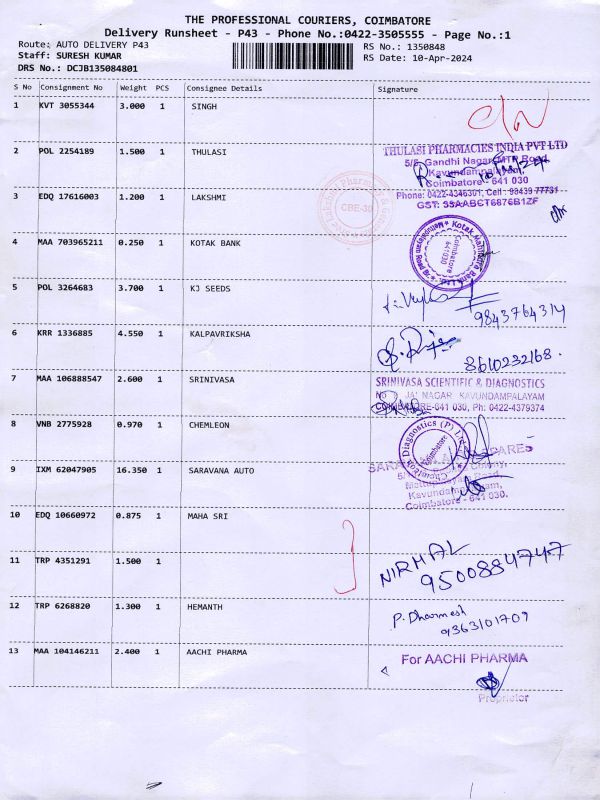 THE PROFESSIONAL COURIERS, COIMBATORE
Delivery Runsheet - P43 - Phone No.:0422-3505555 - Page No.:1
Route: AUTO DELIVERY P43
Staff: SURESH KUMAR
DRS No.: DCJB135084801
RS No.: 1350848
RS Date: 10-Apr-2024
S No Consignment No Weight PCS Consignee Details Signature
1 KVT 3055344 3.000 1 SINGH
2 POL 2254189 1.500 1 THULASI
THULASI PHARMACIES INDIA PVT LTD
5/5, Gandhi Nagar, MTP Road,
Kavundampalayam
Coimbatore - 641 030
Phone: 0422-2436301, Cell: 98439 77731
GST: 33AABCT6876B1ZF
3 EDQ 17616003 1.200 1 LAKSHMI
CBE-30
4 MAA 703965211 0.250 1 KOTAK BANK
Kotak Mahindra Bank Ltd.
Coimbatore
641030
5 POL 3264683 3.700 1 KJ SEEDS
9843764314
6 KRR 1336885 4.550 1 KALPAVRIKSHA
8610232168.
7 MAA 106888547 2.600 1 SRINIVASA
SRINIVASA SCIENTIFIC & DIAGNOSTICS
JAI NAGAR KAVUNDAMPALAYAM
COIMBATORE-641 030, Ph: 0422-4379374
8 VNB 2775928 0.970 1 CHEMLEON
Chemleon Diagnostics (P) Ltd
Coimbatore
9 IXM 62047905 16.350 1 SARAVANA AUTO
SPARES
Kavundampalayam,
Coimbatore - 641 030.
10 EDQ 10660972 0.875 1 MAHA SRI
11 TRP 4351291 1.500 1
NIRMAL
9500884747
12 TRP 6268820 1.300 1 HEMANTH
P. Dharmesh
9363101709
13 MAA 104146211 2.400 1 AACHI PHARMA
For AACHI PHARMA
Proprietor